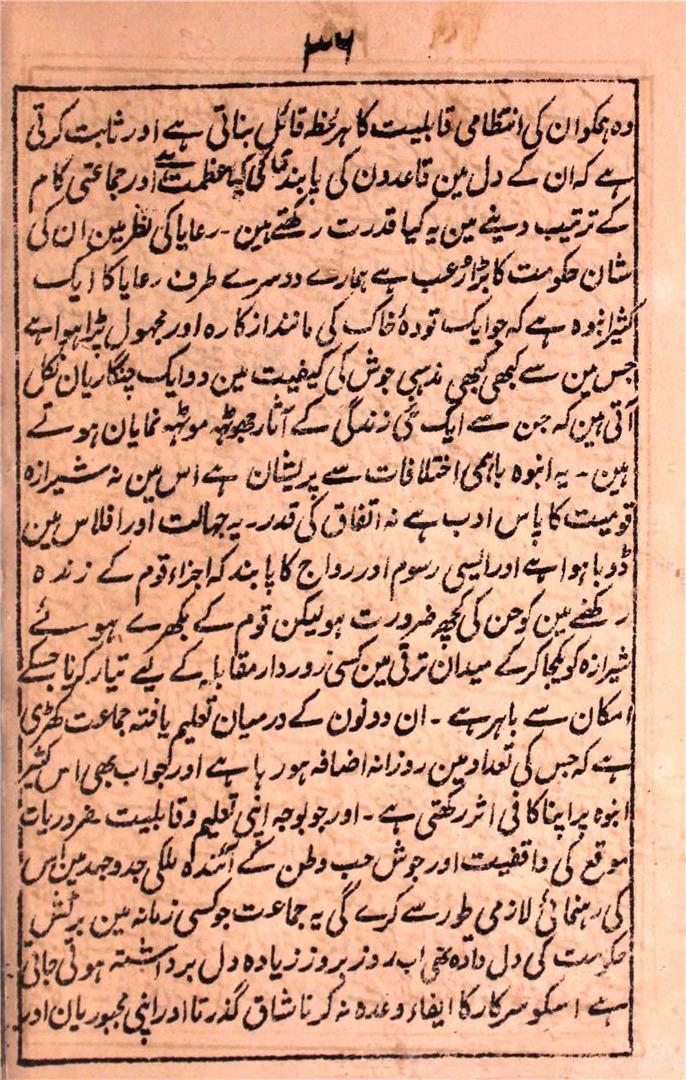 ۳۶
وہ ہمکو ان کی انتظامی قابلیت کا ہر لحظہ قائل بناتی ہے اور ثابت کرتی
ہے کہ ان کے دل مین قاعدون کی پابندی کی کیا عظمت ہے اور جماعتی کام
کے ترتیب دینے مین یہ کیا قدرت رکھتے ہین ۔ رعایا کی نظر مین ان کی
شان حکومت کا بڑا رعب ہے ہمارے دوسرے طرف رعایا کا ایک
کثیر انبوہ ہے کہ جو ایک تودۂ خاک کی مانند ازکارہ اور مجہول پڑا ہوا ہے
جس مین سے کبھی کبھی مذہبی جوش کی کیفیت مین دو ایک چنگاریان نکل
آتی ہین کہ جن سے ایک نئی زندگی کے آثار جھوٹہ موٹہہ نمایان ہوتے
ہین ۔ یہ انبوہ باہمی اختلافات سے پریشان ہے اس مین نہ شیرازہ
قومیت کا پاس ادب ہے نہ اتفاق کی قدر۔ یہ جہالت اور افلاس مین
ڈوبا ہوا ہے اور ایسی رسوم اور رواج کا پابند کہ اجزاء قوم کے زندہ
رکھنے مین کو جن کی کچھ ضرورت ہو لیکن قوم کے بکھرے ہوئے
شیرازہ کو یکجا کرکے میدان ترقی مین کسی زوردار مقابلہ کے لیے تیار کرنا جسکے
امکان سے باہر ہے ۔ ان دونون کے درمیان تعلیم یافتہ جماعت کھڑی
ہے کہ جس کی تعداد مین روزانہ اضافہ ہو رہا ہے اور کو اب بھی اس کثیر
انبوہ پر اپنا کافی اثر رکھتی ہے ۔ اور جو بوجہ اپنی تعلیم و قابلیت ضروریات
موقع کی واقفیت اور جوش حب وطن کے آئندہ ملکی جدوجہد مین اس
کی رہنمائی لازمی طور سے کرے گی یہ جماعت جو کسی زمانہ مین برٹش
حکومت کی دل دادہ تھی اب روز بروز زیادہ دل برداشتہ ہوتی جاتی
ہے اسکو سرکار کا ایفاء وعدہ نہ کرنا شاق گذرتا اور اپنی مجبوریان اور